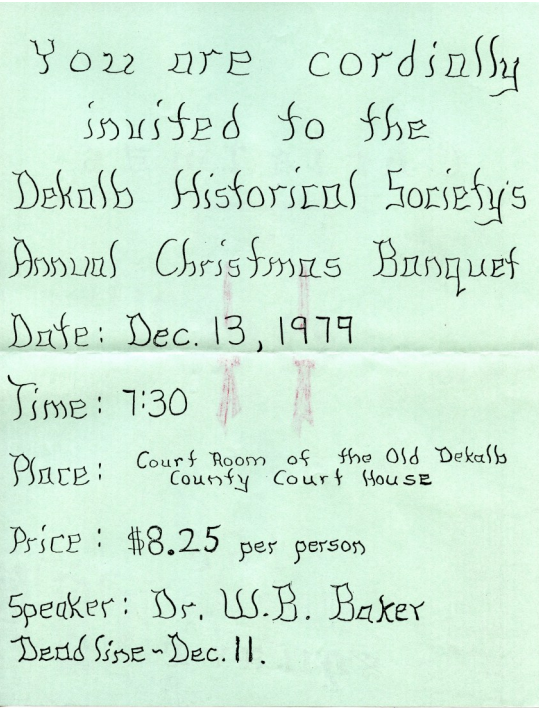 You are cordially
invited to the
Dekalb Historical Society's
Annual Christmas Banquet
Date: Dec. 13, 1979
Time: 7:30
Place: Court Room of the Old Dekalb
County Court House
Price: $8.25 per person
Speaker: Dr. W.B. Baker
Deadline~Dec. 11.